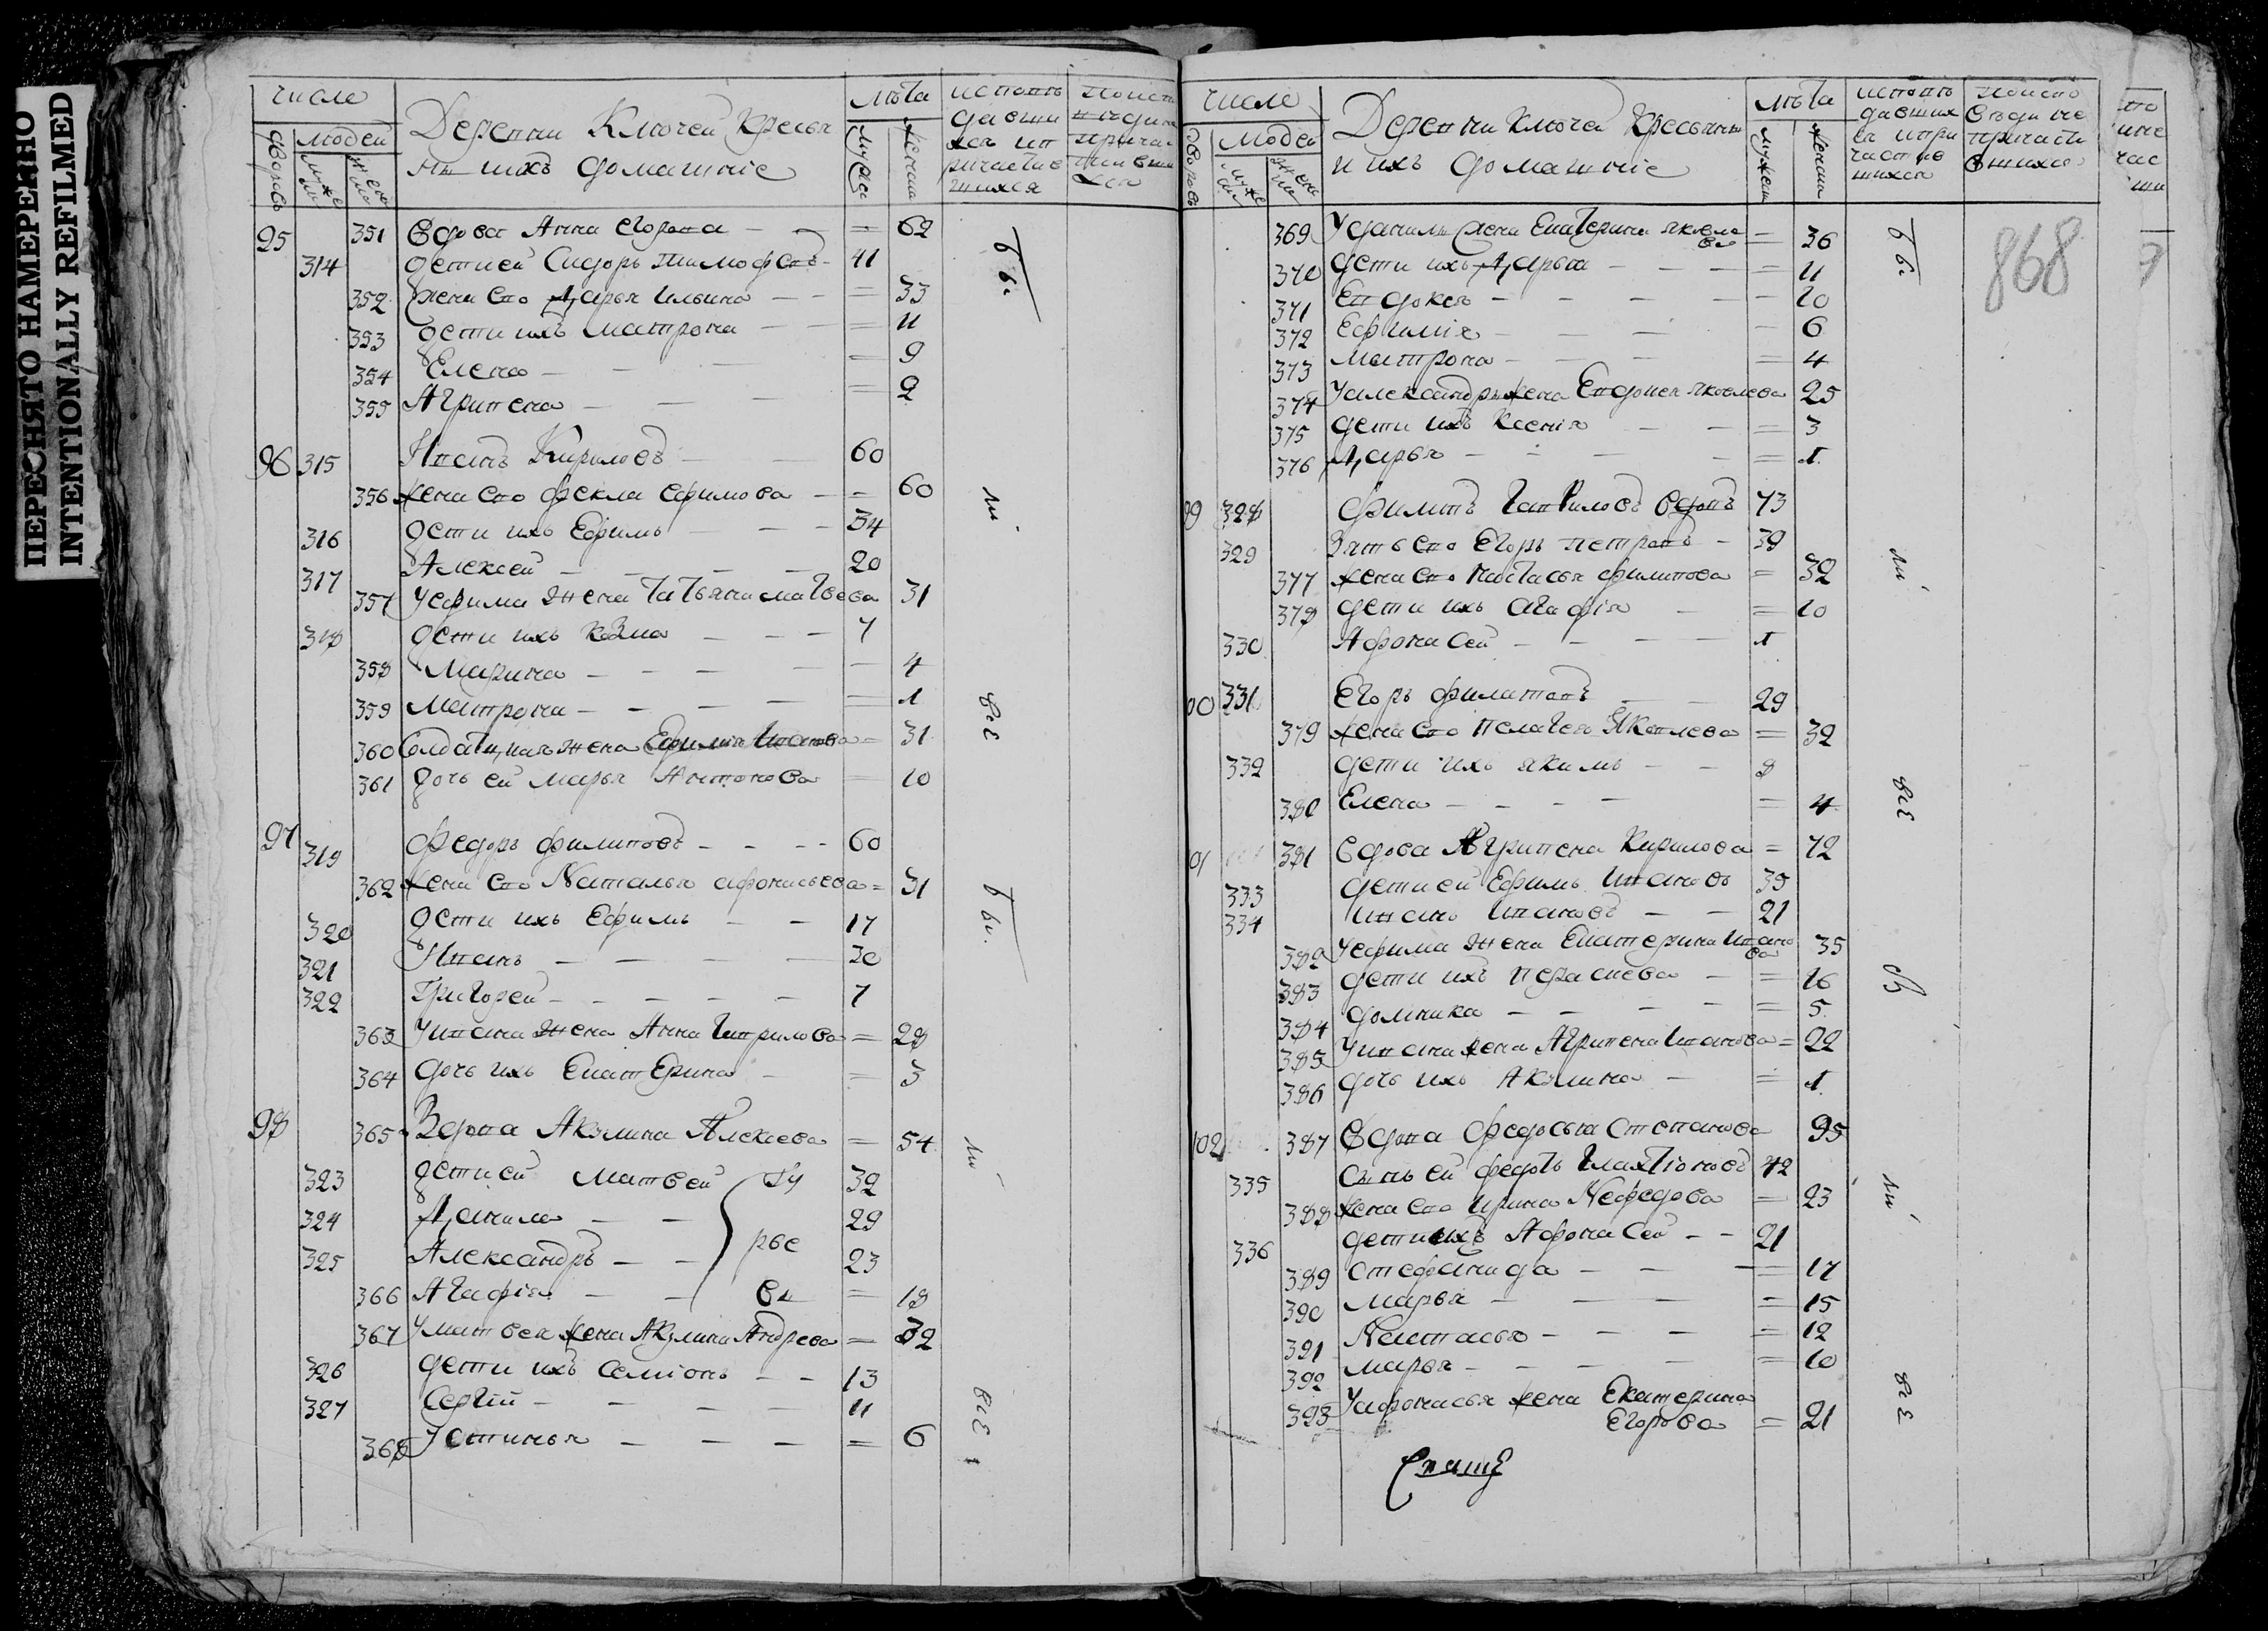 ПЕРЕСНЯТО НАМЕРЕННО
INTENTIONALLY REFILMED
числе
людей
дворовъ
муже
жен
Деревни Ключей Кресья
ны ихъ домашніе
лѣта
мужеи
женска
исповѣ
давши
хся и п
ричастив
шихся
95 351 вдова Анна егорова — 62
314 дети ей Сидоръ тимофеевъ 41
352 жена ево Дарья Ильина — 33
353 дети ихъ матрона — 11
354 Елена — 9
355 Агрипена — 2
96 315 Иванъ Кириловъ — 60
356 жена ево фекла ефимова — 60
316 дети ихъ Ефимъ — 34
317 Алексей — 20
357 У ефима жена Татьяна матвеева 31
318 дети ихъ козма — 7
358 Марина — 4
359 Матрона — 1
360 Солдатская жена Ефимия Иванова 31
361 дочь ей марья Антонова 10
97 319 федоръ филиповъ — 60
362 жена ево Наталья афонасьева 31
320 дети ихъ Ефимъ — 17
321 Иванъ — 20
322 Григорей — 7
363 У ивана жена Анна Гаврилова 28
364 дочь ихъ Екатерина — 3
98 365 Вдова Акулина Алексеева 54
323 дети ей Матвей 32
324 Данила — 29
325 Александръ — 23
366 Агафія — 18
367 У матвея жена Акулина Андреева 32
326 дети ихъ семіонъ — 13
327 Сергій — 11
368 Устинья — 6
числе
людей
дворовъ
Деревни Ключей Кресьяни
и ихъ домашніе
лѣта
мужеи
женска
исповѣ
давших
ся и при
частив
шихся
по испо
веди не
причасти
вшихся
868
369 У данилы жена Екатерина яковле
ва 36
370 дети ихъ Дарья — 11
371 Евдокея — 10
372 Ефимія — 6
373 матрона — 4
374 У александры жена Евдокея яковлева 25
375 дети ихъ Ксенія — 3
376 Дарья — 1
99 328 Филипъ Гавриловъ вдовъ 73
329 Зять ево Егоръ петровъ — 39
377 жена ево Настасья филипова — 32
378 дети ихъ агафія — 10
330 Афонасей — 1
00 331 Егоръ филиповъ 29
379 жена ево пелагея Яковлева — 32
332 дети ихъ якимъ — 8
380 Елена — 4
01 381 вдова Агрипена Кирилова — 72
333 дети ей Ефимъ Ивановъ 35
334 Иванъ Ивановъ — 21
382 У ефима жена Екатерина Ивано
ва 35
383 дети ихъ парасковья — 16
384 домника — 5
385 У ивана жена Агрипена Иванова 22
386 дочь ихъ Акулина — 1
102 387 Вдова федосья Степанова 95
335 Сынъ ей федотъ Галахтіоновъ 42
388 жена ево Ирина Нефедова — 23
336 дети ихъ Афонасей — 21
389 стефанида — 17
390 марья — 15
391 Настасья — 12
392 марья — 10
393 У афонасья жена Екатерина
Егорова — 21